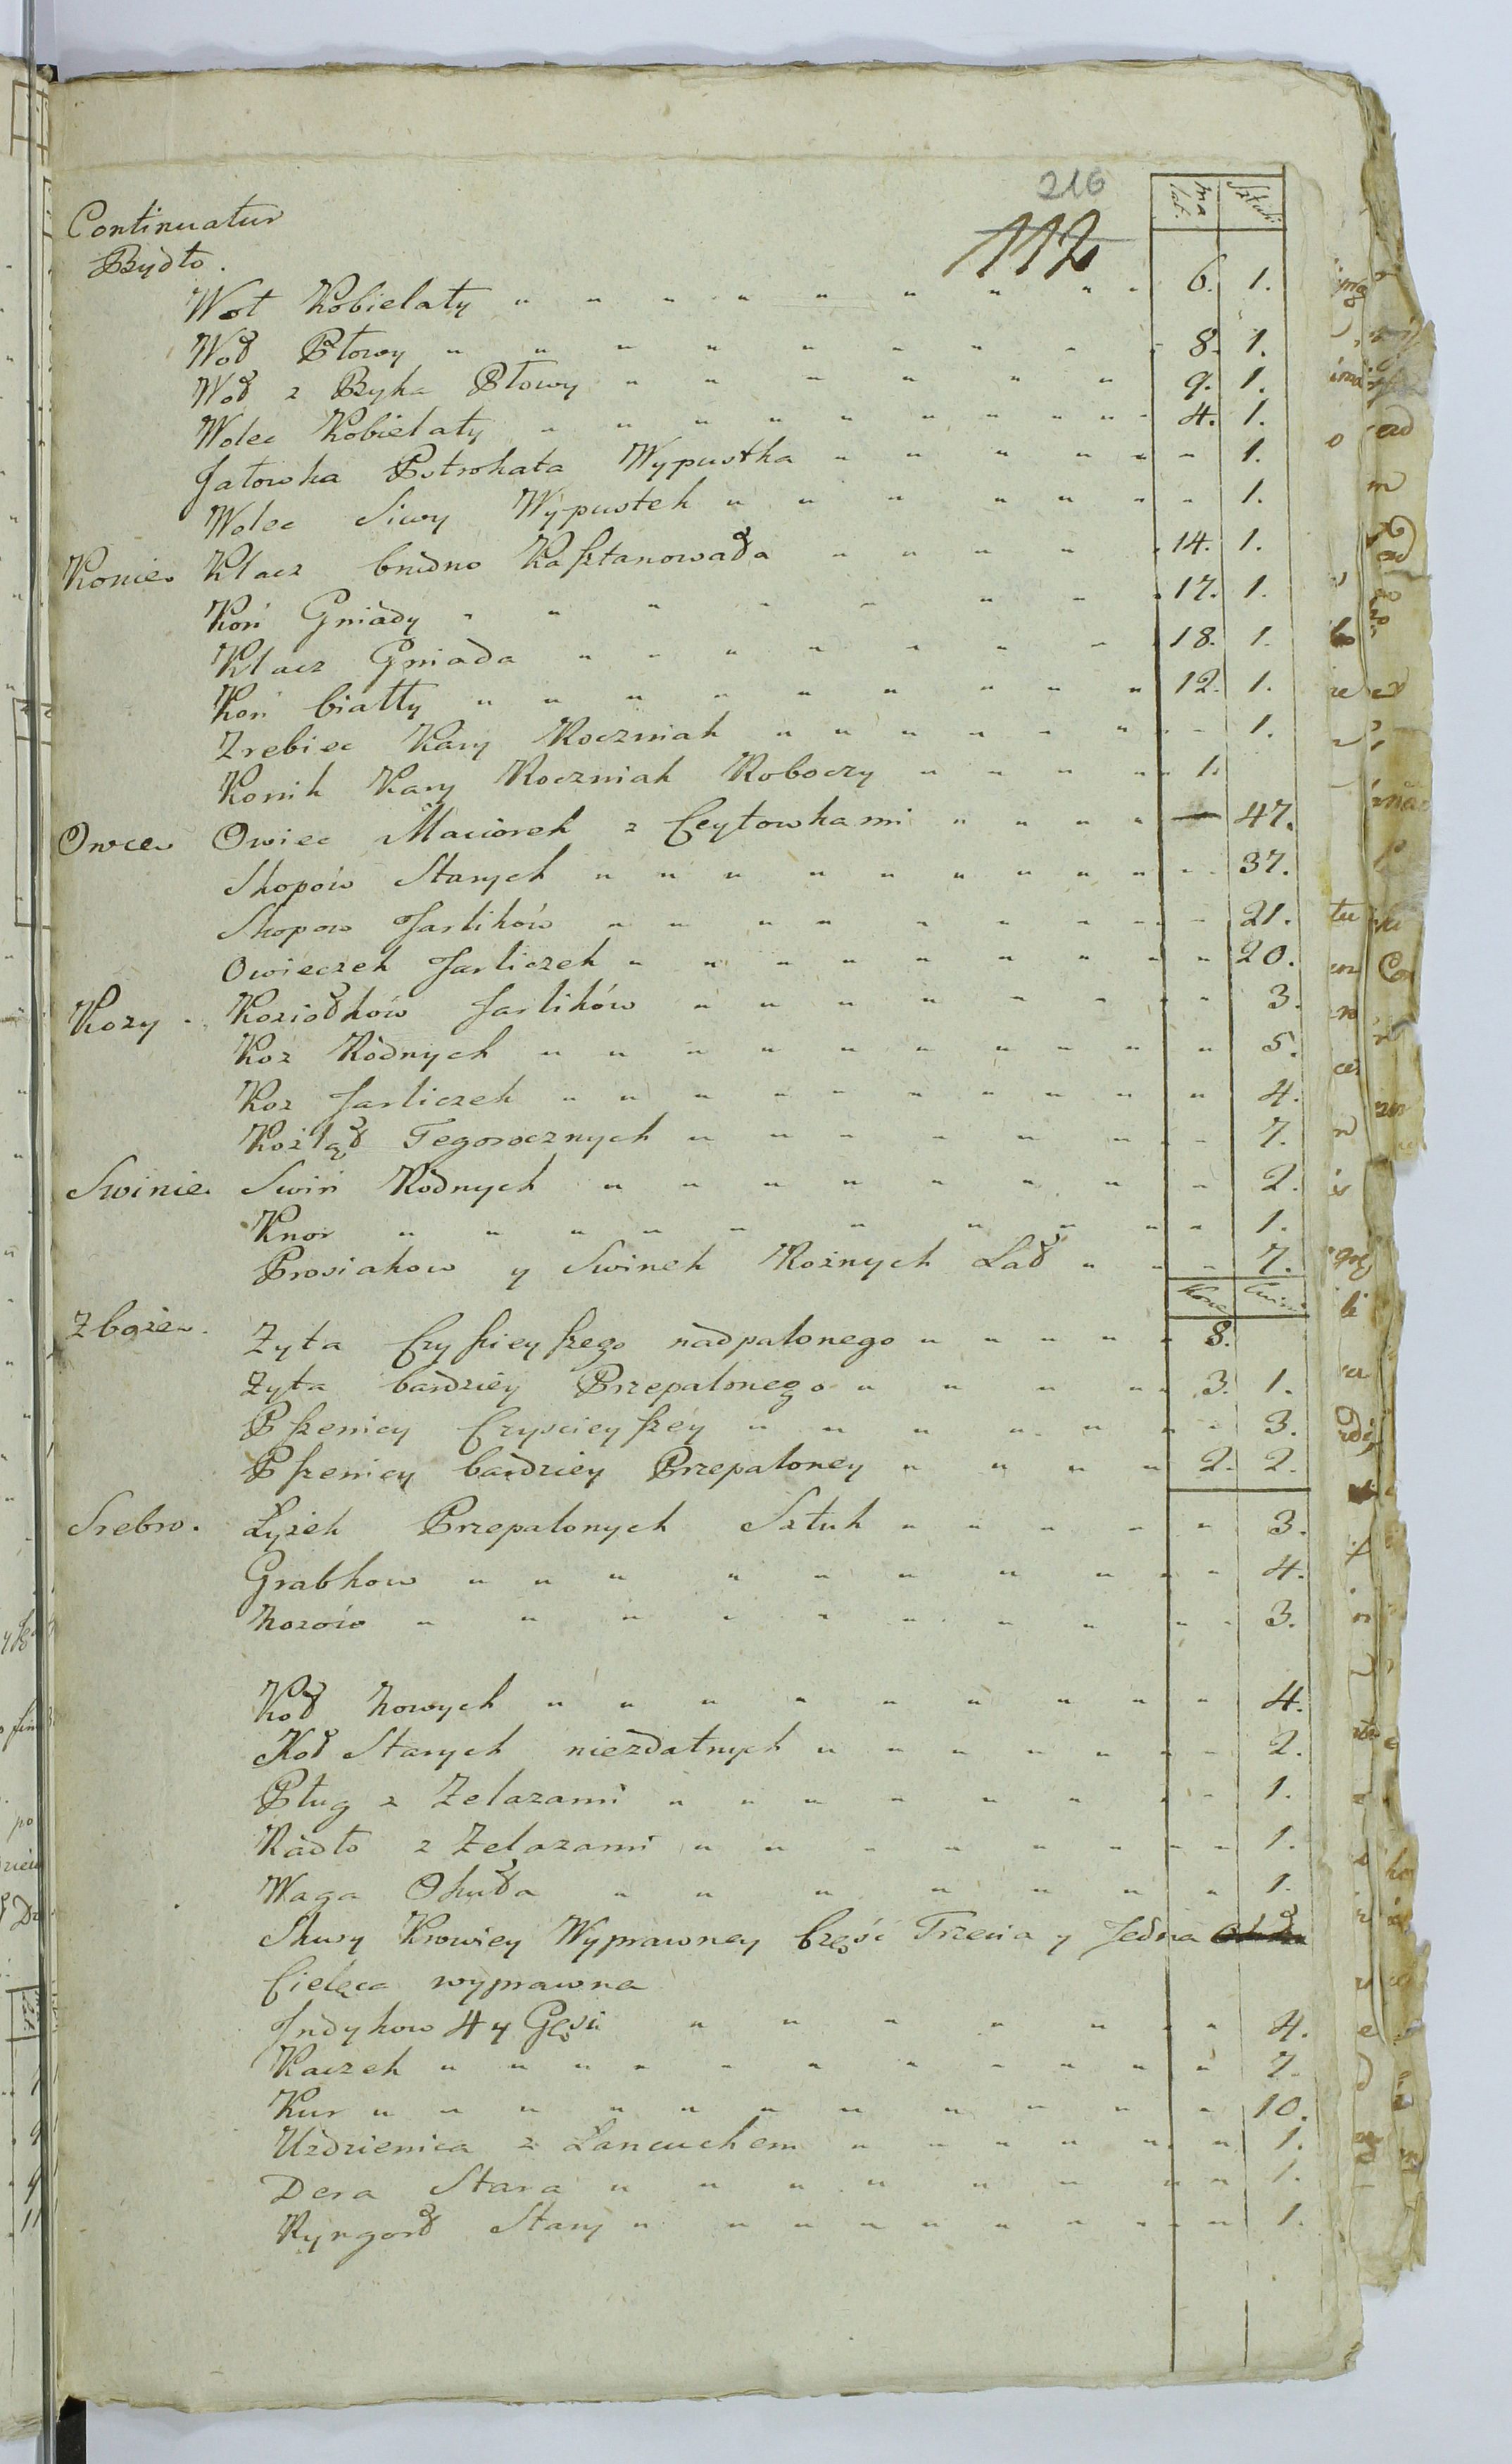 216
112
Continuatur
ma lat. Sztuk
Bydło.
Woł Kobielaty 6. 1.
Woł Płowy 8. 1.
Woł z Byka Płowy 9. 1.
Wolec Kobielaty 4. 1.
Jałowka Pstrokata Wypustka 1.
Wolec Siwy Wypustek 1.
Konie Klacz brudno Kasztanowała 14. 1.
Koń Gniady 17. 1.
Klacz Gniada 18. 1.
Koń białły 12. 1.
Zrebiec Kary Roczniak 1.
Konik Kary Roczniak Roboczy 1.
Owce Owiec Maciorek z Ceytowkami 47.
Skopów Starych 37.
Skopow Jarlików 21.
Owieczek Jarliczek 20.
Kozy Koziołków Jarlików 3.
Koz Rodnych 5.
Koz Jarliczek 4.
Kożląt Tegorocznych 7.
Swinie Swiń Rodnych 2.
Knor 1.
Prosiakow y Swinek Rożnych Lat 7.
Zboże Żyta Czyściejszego nadpalonego 8.
Żyta bardziey Przepalonego 3. 1.
Pszenicy Czyscieyszéy 3.
Pszenicy bardziey Przepaloney 2. 2.
Srebro. Łyżek Przepalonych Sztuk 3.
Grabkow 4.
Nożów 3.
Koł Nowych 4.
Koł Starych niezdatnych 2.
Pług z Żelazami 1.
Radło z Żelazami 1.
Waga Okuta 1.
Skury Krowiey Wyprawney Część Trzecia y Jedna
Cielęca wyprawna
Jndykow 4 y Gęsi 4.
Kaczek 7.
Kur 10.
Uzdzienica z Łancuchem 1.
Dera Stara 1.
Ryngort Stary 1.